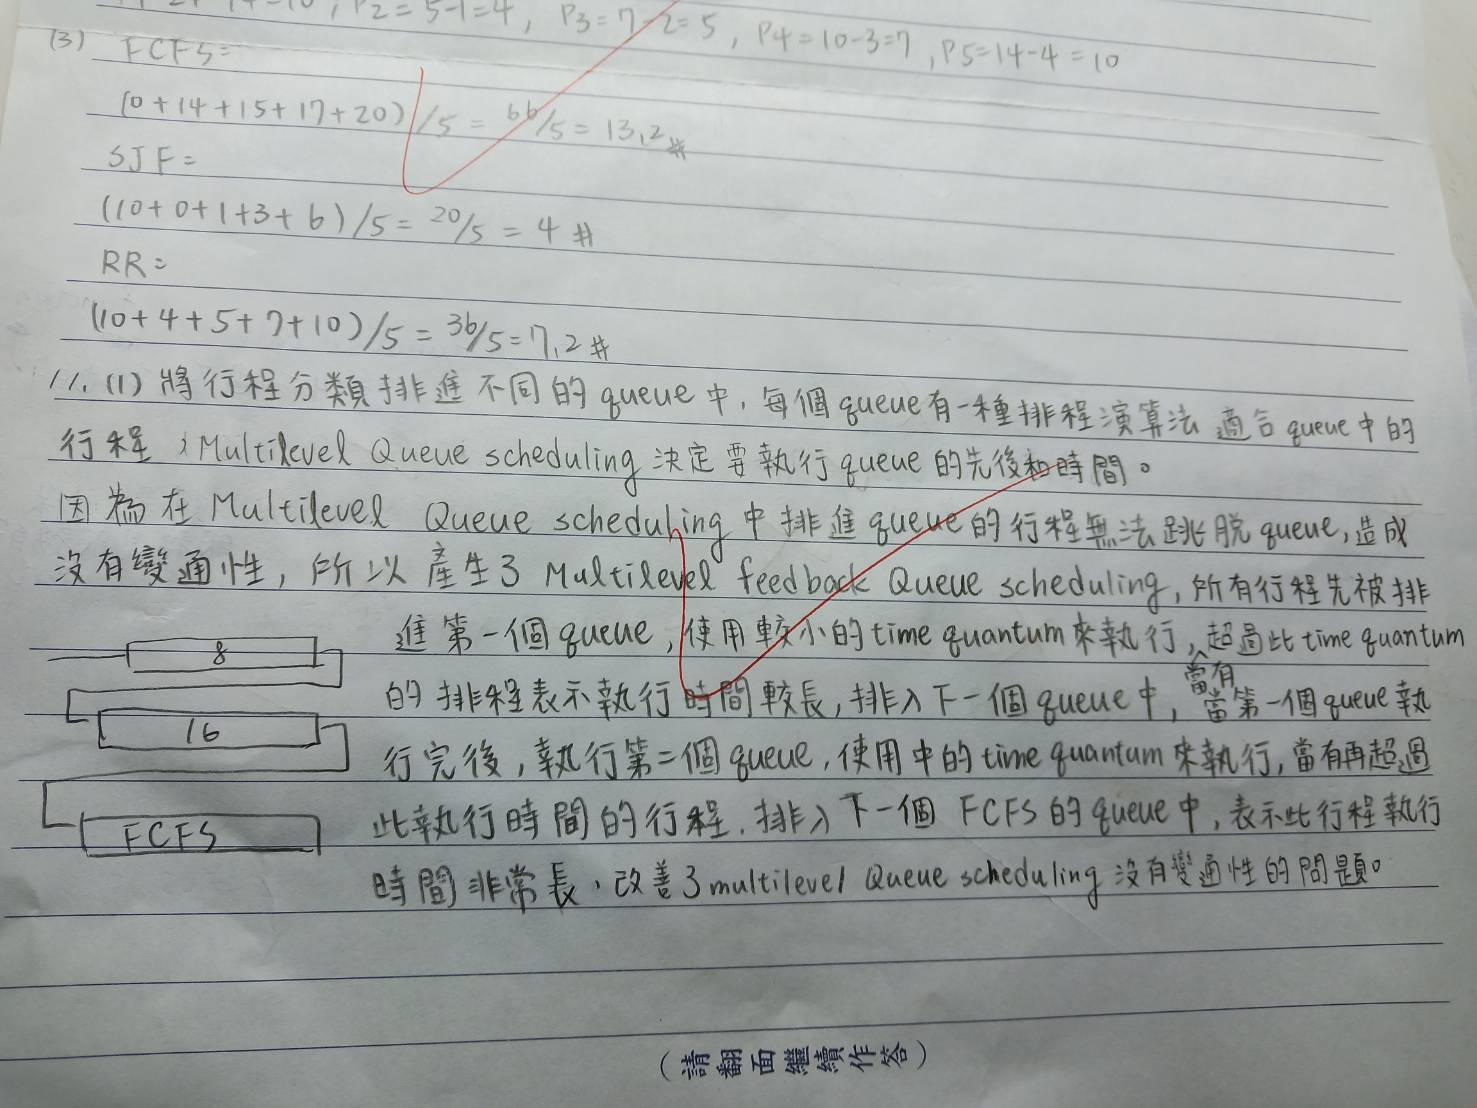 P2=5-1=4, P3=7-2=5, P4=10-3=7, P5=14-4=10
(3) FCFS=
(0+14+15+17+20)/5=66/5=13.2#
SJF=
(10+0+1+3+6)/5=20/5=4#
RR=
(10+4+5+7+10)/5=36/5=7.2#
11.(1)將行程分類排進不同的queue中,每個queue有一種排程演算法適合queue中的
行程;Multilevel Queue scheduling決定要執行queue的先後和時間。
因為在Multilevel Queue scheduling中排進queue的行程無法跳脫queue,造成
沒有變通性,所以產生3 Multilevel feedback Queue scheduling,所有行程先被排
進第一個queue,使用較小的time quantum來執行,當有超過此time quantum
的排程表示執行時間較長,排入下一個queue中,當第一個queue執
行完後,執行第二個queue,使用中的time quantum來執行,當有再超過
此執行時間的行程,排入下一個FCFS的queue中,表示此行程執行
時間非常長,改善3multilevel Queue scheduling沒有變通性的問題。
8
16
FCFS
(請翻面繼續作答)